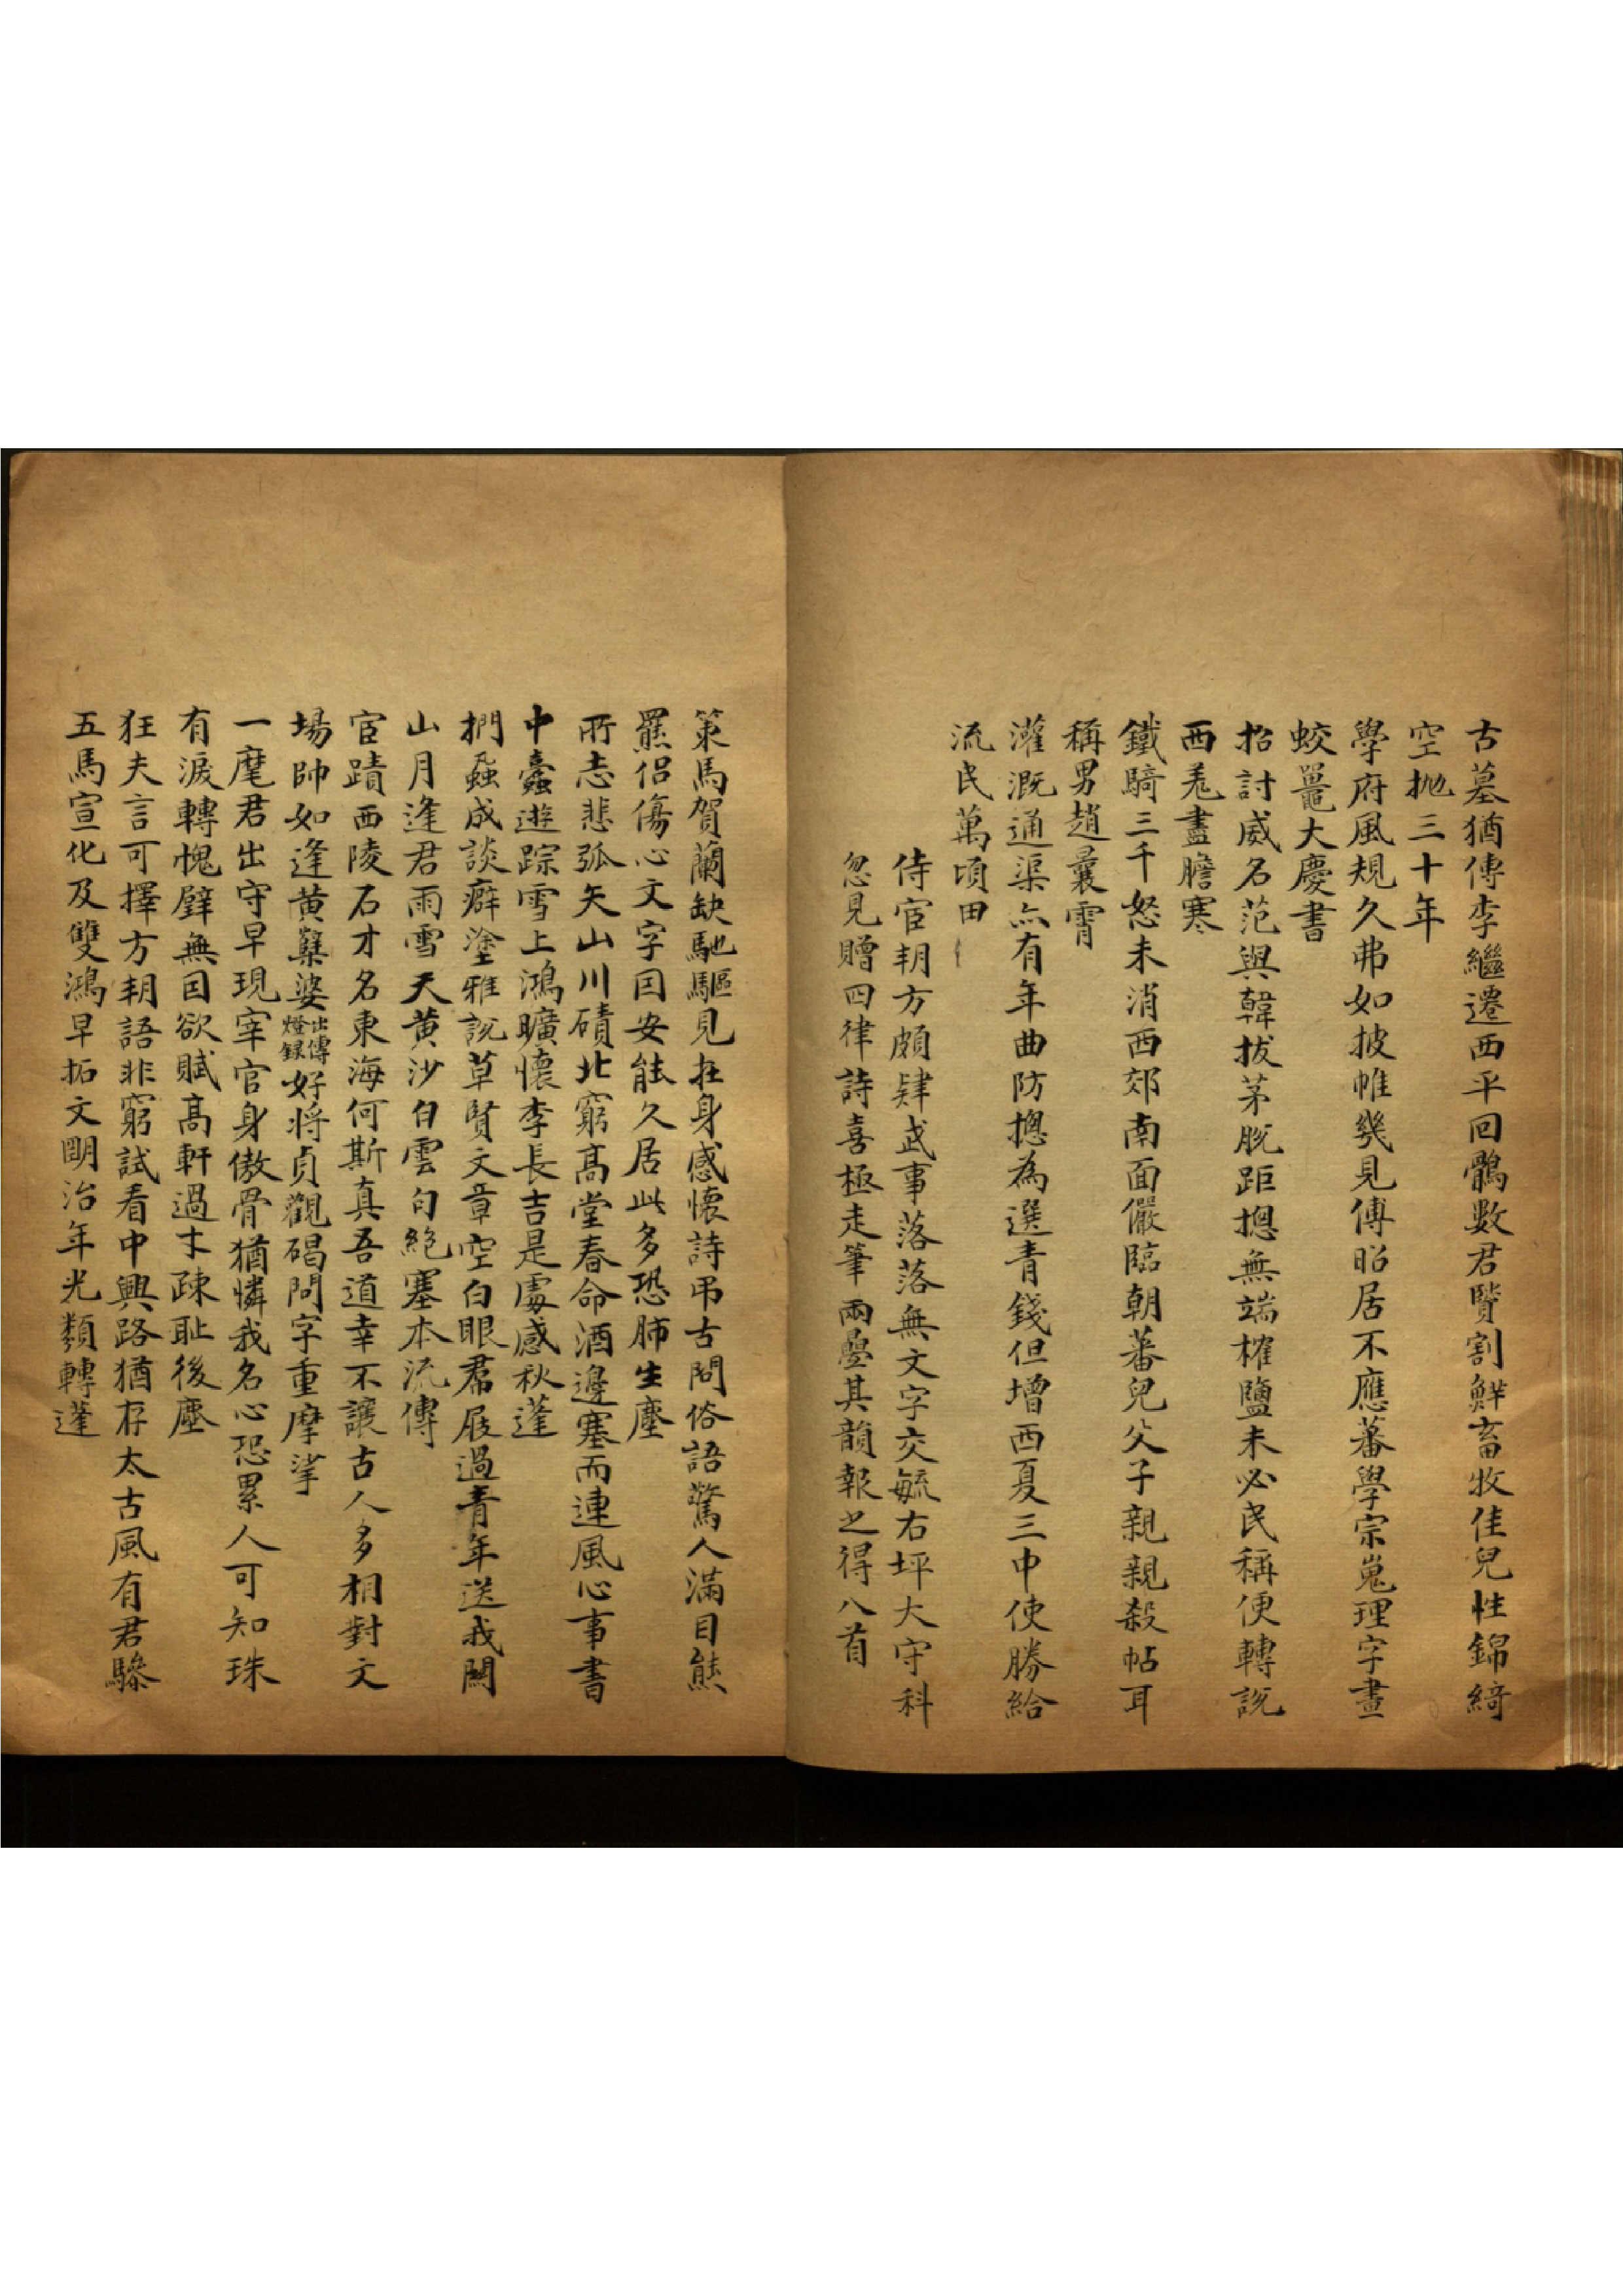 古墓猶傳李繼遷西平回鶻數君賢割鮮畜牧佳兒性錦綺
空抛三十年
學府風規久弗如披帷幾見傅昭居不應蕃學宗嵬理字畫
蛟鼉大慶書
招討威名范與韓拔茅脫距摠無端榷鹽未必民稱便轉說
西羗盡膽寒
鐵騎三千怒未消西郊南面儼臨朝蕃兒父子親親殺帖耳
稱男趙曩霄
灌溉通渠亦有年曲防摠為選青錢但增西夏三中使勝給
流民萬頃田
侍宦朔方頗肄武事落落無文字交毓右坪大守科
忽見贈四律詩喜極走筆兩疊其韻報之得八首
策馬賀蘭缺馳驅見在身感懷詩弔古問俗語驚人滿目熊
羆侶傷心文字因安能久居此多恐肺生塵
所志悲弧矢山川磧北窮高堂春命酒邊塞而連風心事書
中蠹遊踪雪上鴻曠懷李長吉是處感秋蓬
捫蝨成談癖塗雅說草賢文章空白眼裙屐過青年送我關
山月逢君雨雪天黄沙白雲句絶塞本流傳
宦蹟西陵石才名東海何斯真吾道幸不讓古人多相對文
場帥如逢黄蘗婆出傳燈録好將貞觀碣問字重摩挲
一麾君出守早現宰官身傲骨猶憐我名心恐累人可知珠
有淚轉愧璧無因欲賦高軒過才疎耻後塵
狂夫言可擇方朔語非窮試看中興路猶存太古風有君驂
五馬宣化及雙鴻早拓文朙治年光類轉蓬